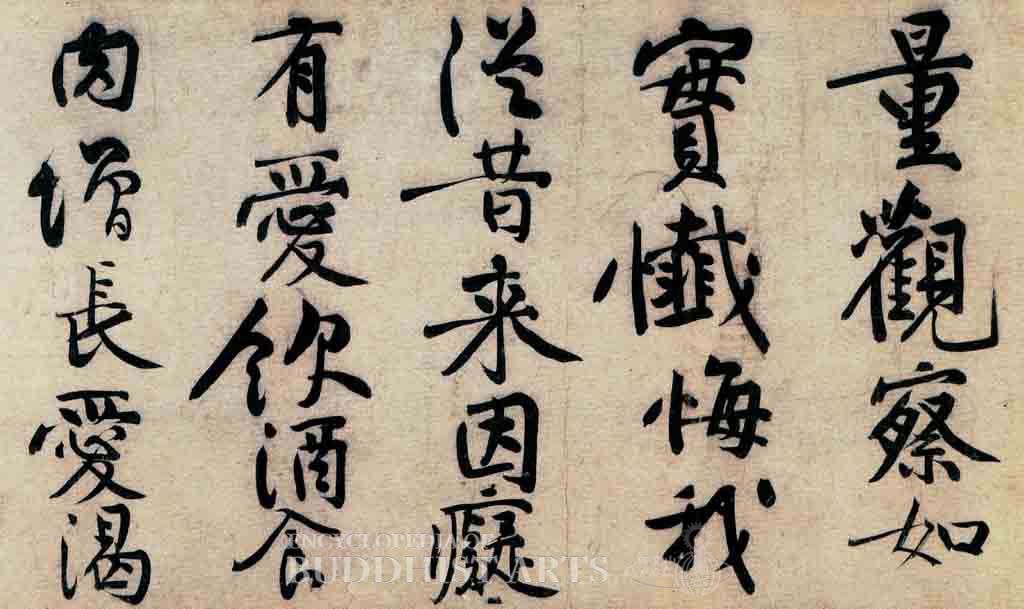 量觀察如
實懺悔我
從昔来因癡
有愛飲酒食
肉增長愛渴
ENCYCLOPEDIA OF
BUDDHIST ARTS